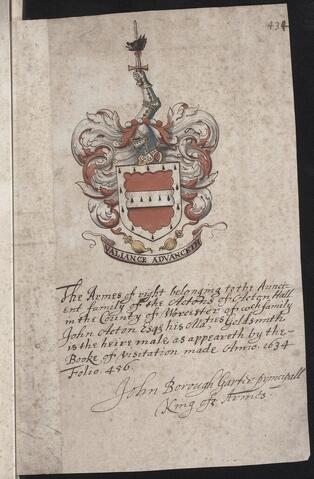 434
VALIANCE ADVANCETH
The Armes of right belonging to the Ancient
ent family of the Actons of Acton Hall
in the County of Worcester of wch family
John Acton Esqr his Matie's Goldsmith
is the heire male as appeareth by the
Booke of Visitation made Anno. 1634
Folio. 456.
John Borough Garter principall
King of Armes